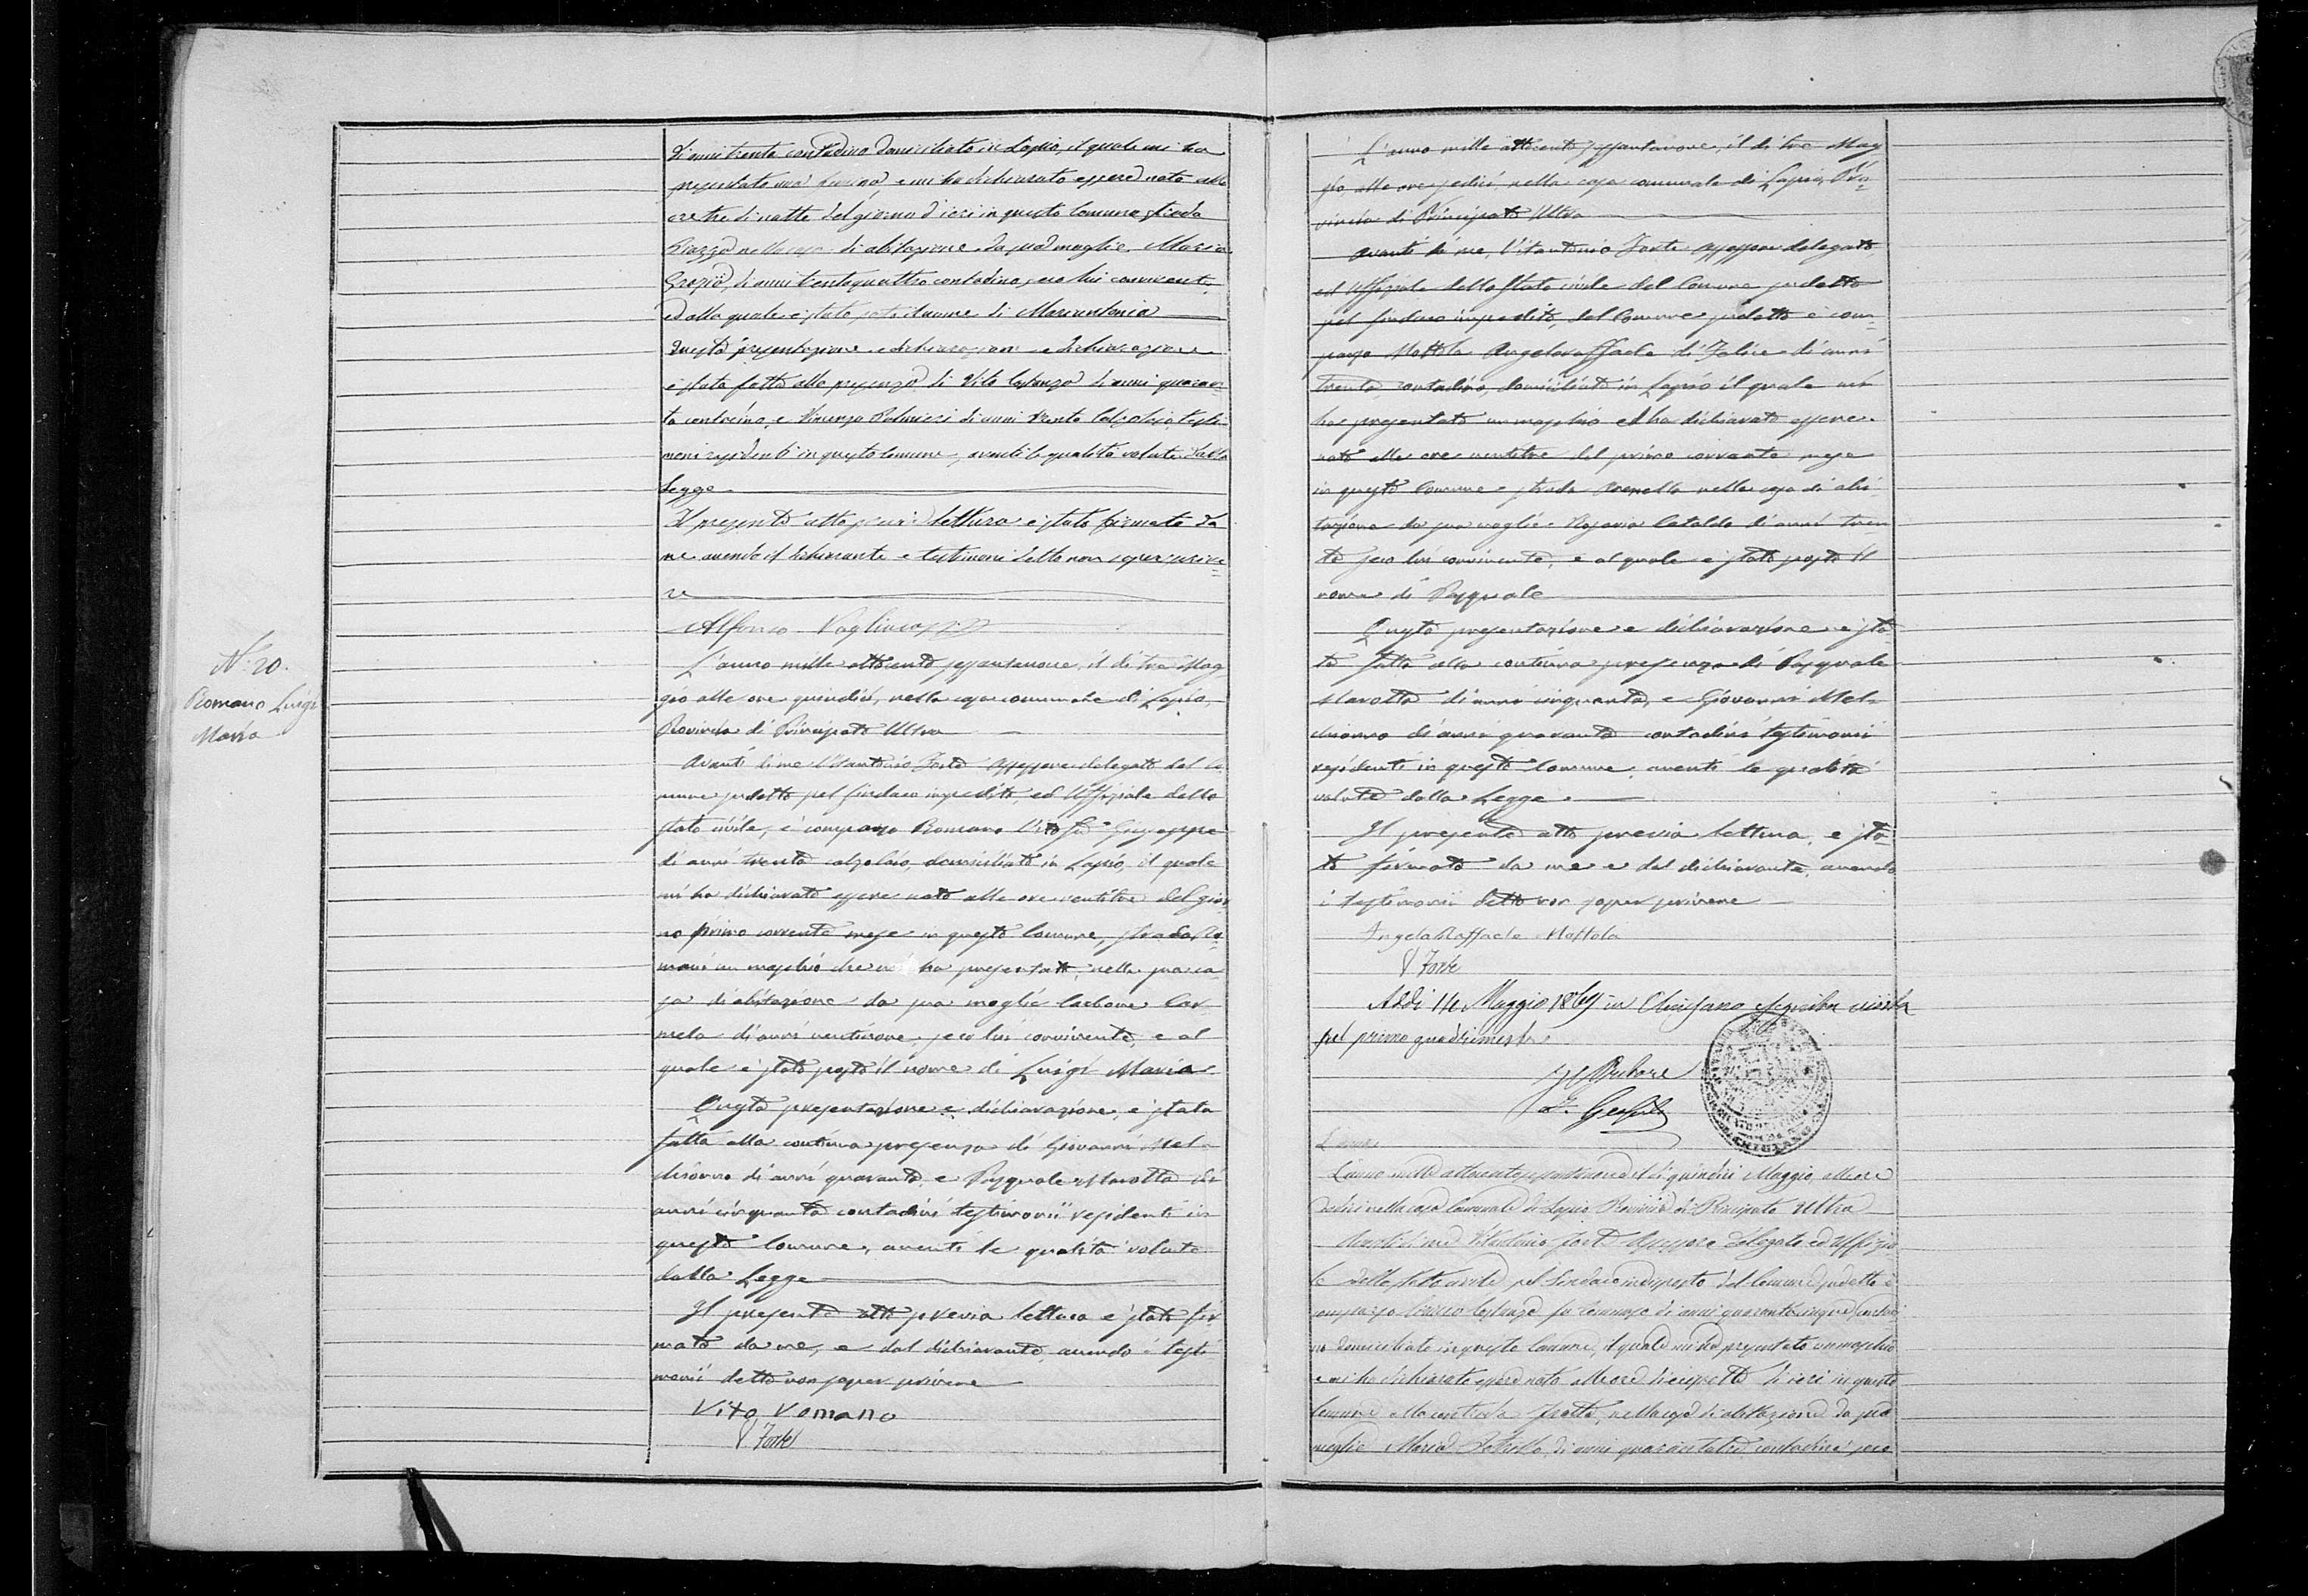 di anni trenta contadino domiciliato in Lapio, il quale mi ha
presentato una femina, e mi ha dichiarato essere nata alle
ore tre di notte del giorno d'ieri in questo Comune strada
Piazza nella casa di abitazione da sua moglie Maria
di anni trentaquattro contadina, seco lui convivente,
ed alla quale è stato dato il nome di Mariantonia
Questa presentazione e dichiarazione e dichiarazione
è stata fatta alla presenza di Vito Costanza di anni quaran=
ta contadino, e Vincenzo di anni trenta Calzolaio testi
moni residenti in questo Comune, aventi le qualità volute dalla
Legge
Il presente atto previa lettura è stato firmato da
me avendo il dichiarante e testimoni detto non saper scrive
=
re
Alfonso
N.º 20.
Romano Luigi
Maria
L'anno mille ottocento sessantanove, il dì tre Mag
gio alle ore quindici, nella casa comunale di Lapio,
Provincia di Principato Ultra
Avanti di me Vitantonio Forte Assessore delegato del Co
mune sudetto pel sindaco impedito, ed Uffiziale dello
stato civile, è comparso Romano Vito fu Giuseppe
di anni trenta calzolaio, domiciliato in Lapio, il quale
mi ha dichiarato essere nato alle ore ventitre del gior
no primo corrente mese in questo Comune, strada Ro=
mani un maschio che mi ha presentato, nella sua ca=
sa di abitazione da sua moglie Carbone Car
mela di anni ventinove, seco lui convivente, e al
quale è stato posto il nome di Luigi Maria
Questa presentazione e dichiarazione, è stata
fatta alla continua presenza di Giovanni Mel
chionno di anni quaranta, e Pasquale Marotta di
anni cinquanta contadini testimonii residenti in
questo Comune, aventi le qualità volute
dalla Legge
Il presente atto previa lettura è stato fir
mato da me, e dal dichiarante, avendo i testi
monii detto non saper scrivere
Vito Romano
V Forte
L'anno mille ottocento sessantanove, il dì tre Mag
gio alle ore sedici nella casa comunale di Lapio, Pro=
vincia di Principato Ultra
Avanti di me, Vitantonio Forte Assessore delegato,
ed Uffiziale dello Stato civile del Comune sudetto
pel sindaco impedito, del Comune sudetto è com=
parso Mottola Angeloraffaele di Felice di anni
trenta, contadino, domiciliato in Lapio il quale mi
ha presentato un maschio ed ha dichiarato essere
nato alle ore ventitre del primo corrente mese
in questo Comune strada nella casa di abi
tazione da sua moglie Rosaria Cataldo di anni tren
ta seco lui convivente, e al quale è stato posto il
nome di Pasquale
Questa presentazione e dichiarazione è sta
ta fatta alla continua presenza di Pasquale
Marotta di anni cinquanta, e Giovanni Mel
chionno di anni quaranta contadini testimonii
residenti in questo Comune aventi le qualità
volute dalla Legge.
Il presente atto previa lettura, è sta=
to firmato da me e dal dichiarante, avendo
i testimonii detto non saper scrivere
Angelo Raffaele Mottola
V Forte
Addi 14 Maggio 1869 in Chiusano
pel primo quadrimestre
Il Pretore
L'anno
L'anno mille ottocento sessantanove il dì quindici Maggio, alle ore
sedici nella casa Comunale di Lapio Provincia di Principato Ultra
Avanti di me Vitantonio Forte Assessore Delegato ed Uffizia
le dello stato civile pel Sindaco indisposto del Comune sudetto è
comparso Costanza fu di anni quarantacinque contadi
no domiciliato in questo Comune, il quale mi ha presentato un maschio
e mi ha dichiarato essere nato alle ore diecisette di ieri in questo
Comune alla contrada nella casa di abitazione da sua
moglie Maria di anni quarantatre contadina seco